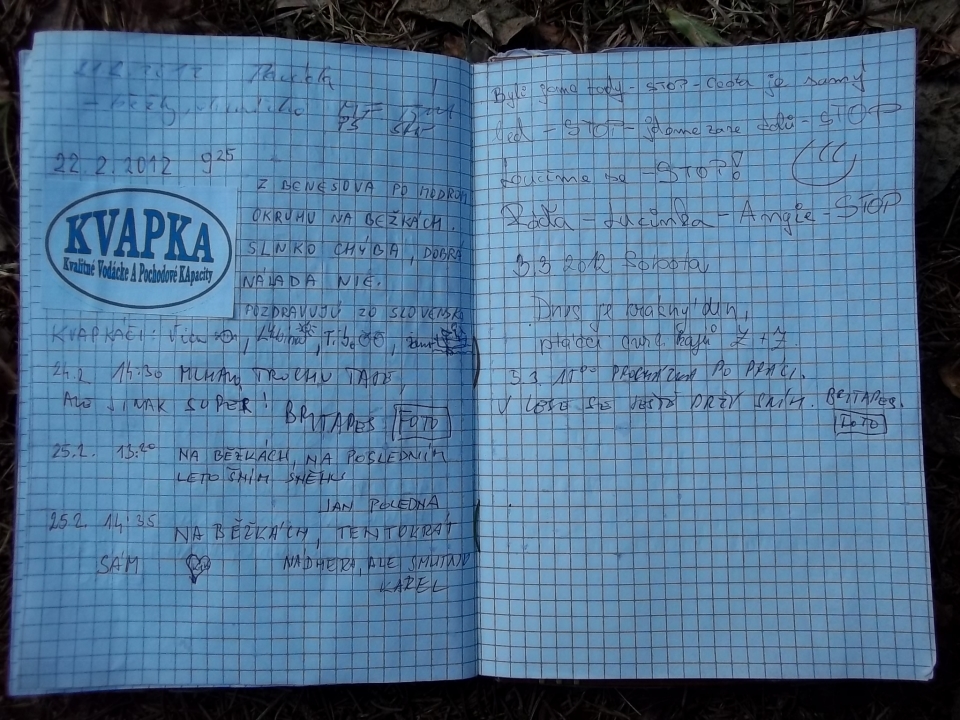 22.2.2012 9 25
Z BENEŠOVA PO MODROM
OKRUHU NA BEŽKÁCH.
SLNKO CHÝBA, DOBRÁ
NÁLADA NIE.
POZDRAVUJÚ ZO SLOVENSKA
KVAPKA
Kvalitné Vodácke A Pochodové KApacity
KVAPKÁČI:
24.2. 14:30 TROCHU TAJE,
ALE JINAK SUPER! BRTTAPES FOTO
25.2. 13:20 NA BĚŽKÁCH, NA POSLEDNÍM
LETOŠNÍM SNĚHU
JAN POLEDNA
25.2. 14:35 NA BĚŽKÁCH, TENTOKRÁT
SÁM NÁDHERA, ALE SMUTNO
KAREL
Byli jsme tady - STOP - Cesta je samý
led - STOP - jdeme zase dolů - STOP
Loučíme se - STOP!
- Lucinka - Angie - STOP
3.3 2012 Sobota,
Dnes je krásný den,
ptáčci Z + Z
3.3. 11 00 PROCHÁZKA PO PRÁCI.
V LESE SE JEŠTĚ DRŽÍ SNÍH. BRTTAPES.
FOTO